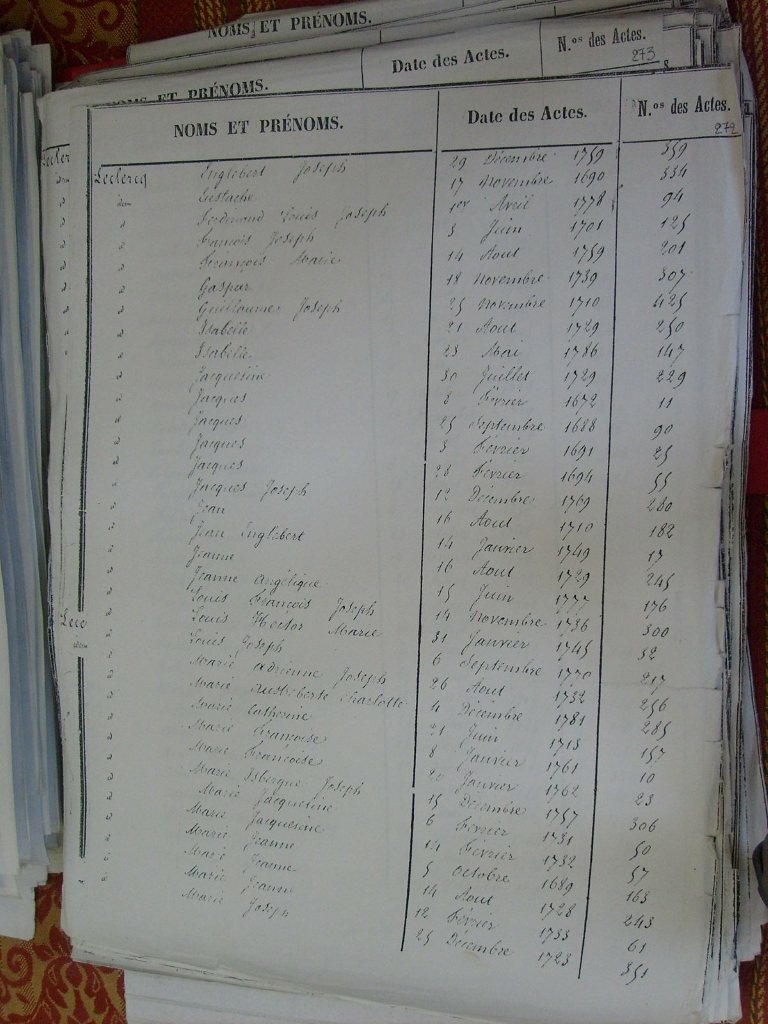 NOMS ET PRÉNOMS.
NOMS ET PRÉNOMS. Date des Actes. N.os des Actes.
273
NOMS ET PRÉNOMS. Date des Actes. N.os des Actes.
272
Leclercq Englebert Joseph 29 Décembre 1759 359
idem Eustache 17 Novembre 1690 334
d Ferdinand Louis Joseph 1er Avril 1778 94
d François Joseph 3 Juin 1701 125
d François Marie 14 Aout 1759 201
d Gaspar 18 Novembre 1739 307
d Guillaume Joseph 25 Novembre 1710 425
d Isabelle 21 Aout 1729 250
d Isabelle 23 Mai 1786 147
d Jacqueline 30 Juillet 1729 229
d Jacques 8 Février 1672 11
d Jacques 25 Septembre 1688 90
d Jacques 3 Février 1691 25
d Jacques 28 Février 1694 55
d Jacques Joseph 12 Décembre 1769 280
d Jean 16 Aout 1710 182
d Jean Englebert 14 Janvier 1749 17
d Jeanne 16 Aout 1729 245
d Jeanne Angélique 15 Juin 1777 176
d Louis François Joseph 14 Novembre 1736 300
d Louis Hector Marie 31 Janvier 1745 32
d Louis Joseph 6 Septembre 1770 217
d Marie Adrienne Joseph 26 Aout 1732 256
d Marie Austreberte Charlotte 4 Décembre 1781 285
d Marie Catherine 21 Juin 1713 157
d Marie Françoise 8 Janvier 1761 10
d Marie Françoise 20 Janvier 1762 23
d Marie Isbergue Joseph 15 Décembre 1757 306
d Marie Jacqueline 6 Février 1731 50
d Marie Jacqueline 14 Février 1732 57
d Marie Jeanne 5 Octobre 1689 163
d Marie Jeanne 14 Aout 1728 243
d Marie Jeanne 12 Février 1733 61
d Marie Joseph 25 Décembre 1723 351